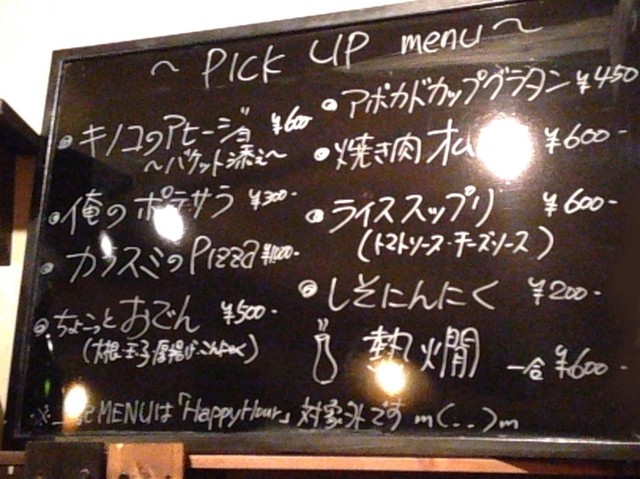 ~ PICK UP menu ~
キノコのアヒージョ ¥600-
~バケット添え~
俺のポテサラ ¥300-
カラスミのPizza ¥1,000-
ちょこっとおでん ¥500-
(大根・玉子・厚揚げ・こんにゃく)
アボカドカップグラタン ¥450
焼き肉 ¥600-
ライススップリ ¥600-
(トマトソース・チーズソース)
しそにんにく ¥200-
熱燗 一合 ¥600-
※ 記MENUは「HappyHour」対象外です m(..)m